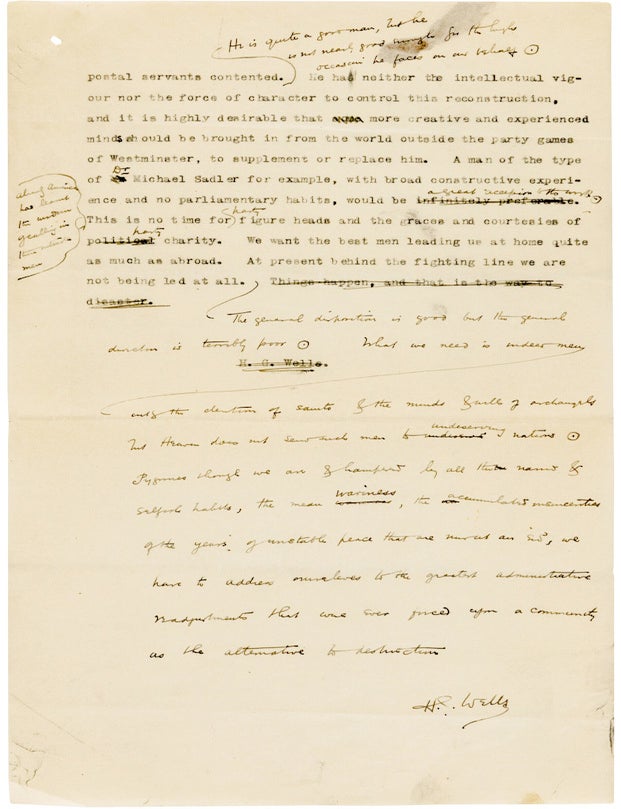 He is quite a good man, but he
is not nearly good enough for the high
occasion he faces on our behalf
postal servants contented. He had neither the intellectual vig-
our nor the force of character to control this reconstruction,
and it is highly desirable that more creative and experienced
minds should be brought in from the world outside the party games
of Westminster, to supplement or replace him. A man of the type
of Dr Michael Sadler for example, with broad constructive experi-
a great
ence and no parliamentary habits, would be infinitely preferable.
party
This is no time for figure heads and the graces and courtesies of
party
political charity. We want the best men leading us at home quite
as much as abroad. At present behind the fighting line we are
not being led at all. Things happen, and that is the way to
disaster.
men
The general disposition is good but the general
direction is terribly poor. What we need is indeed men
H. G. Wells.
with the devotion of saints & the minds & wills of archangels
undeserving
but Heaven does not send such men to nations
Pygmies though we are & hampered by all the &
wariness
selfish habits, the mean , the accumulated
of the years of unstable peace that are now at an end, we
have to address ourselves to the greatest administrative
readjustments that were ever forced upon a community
as the alternative to destruction
H. G. Wells